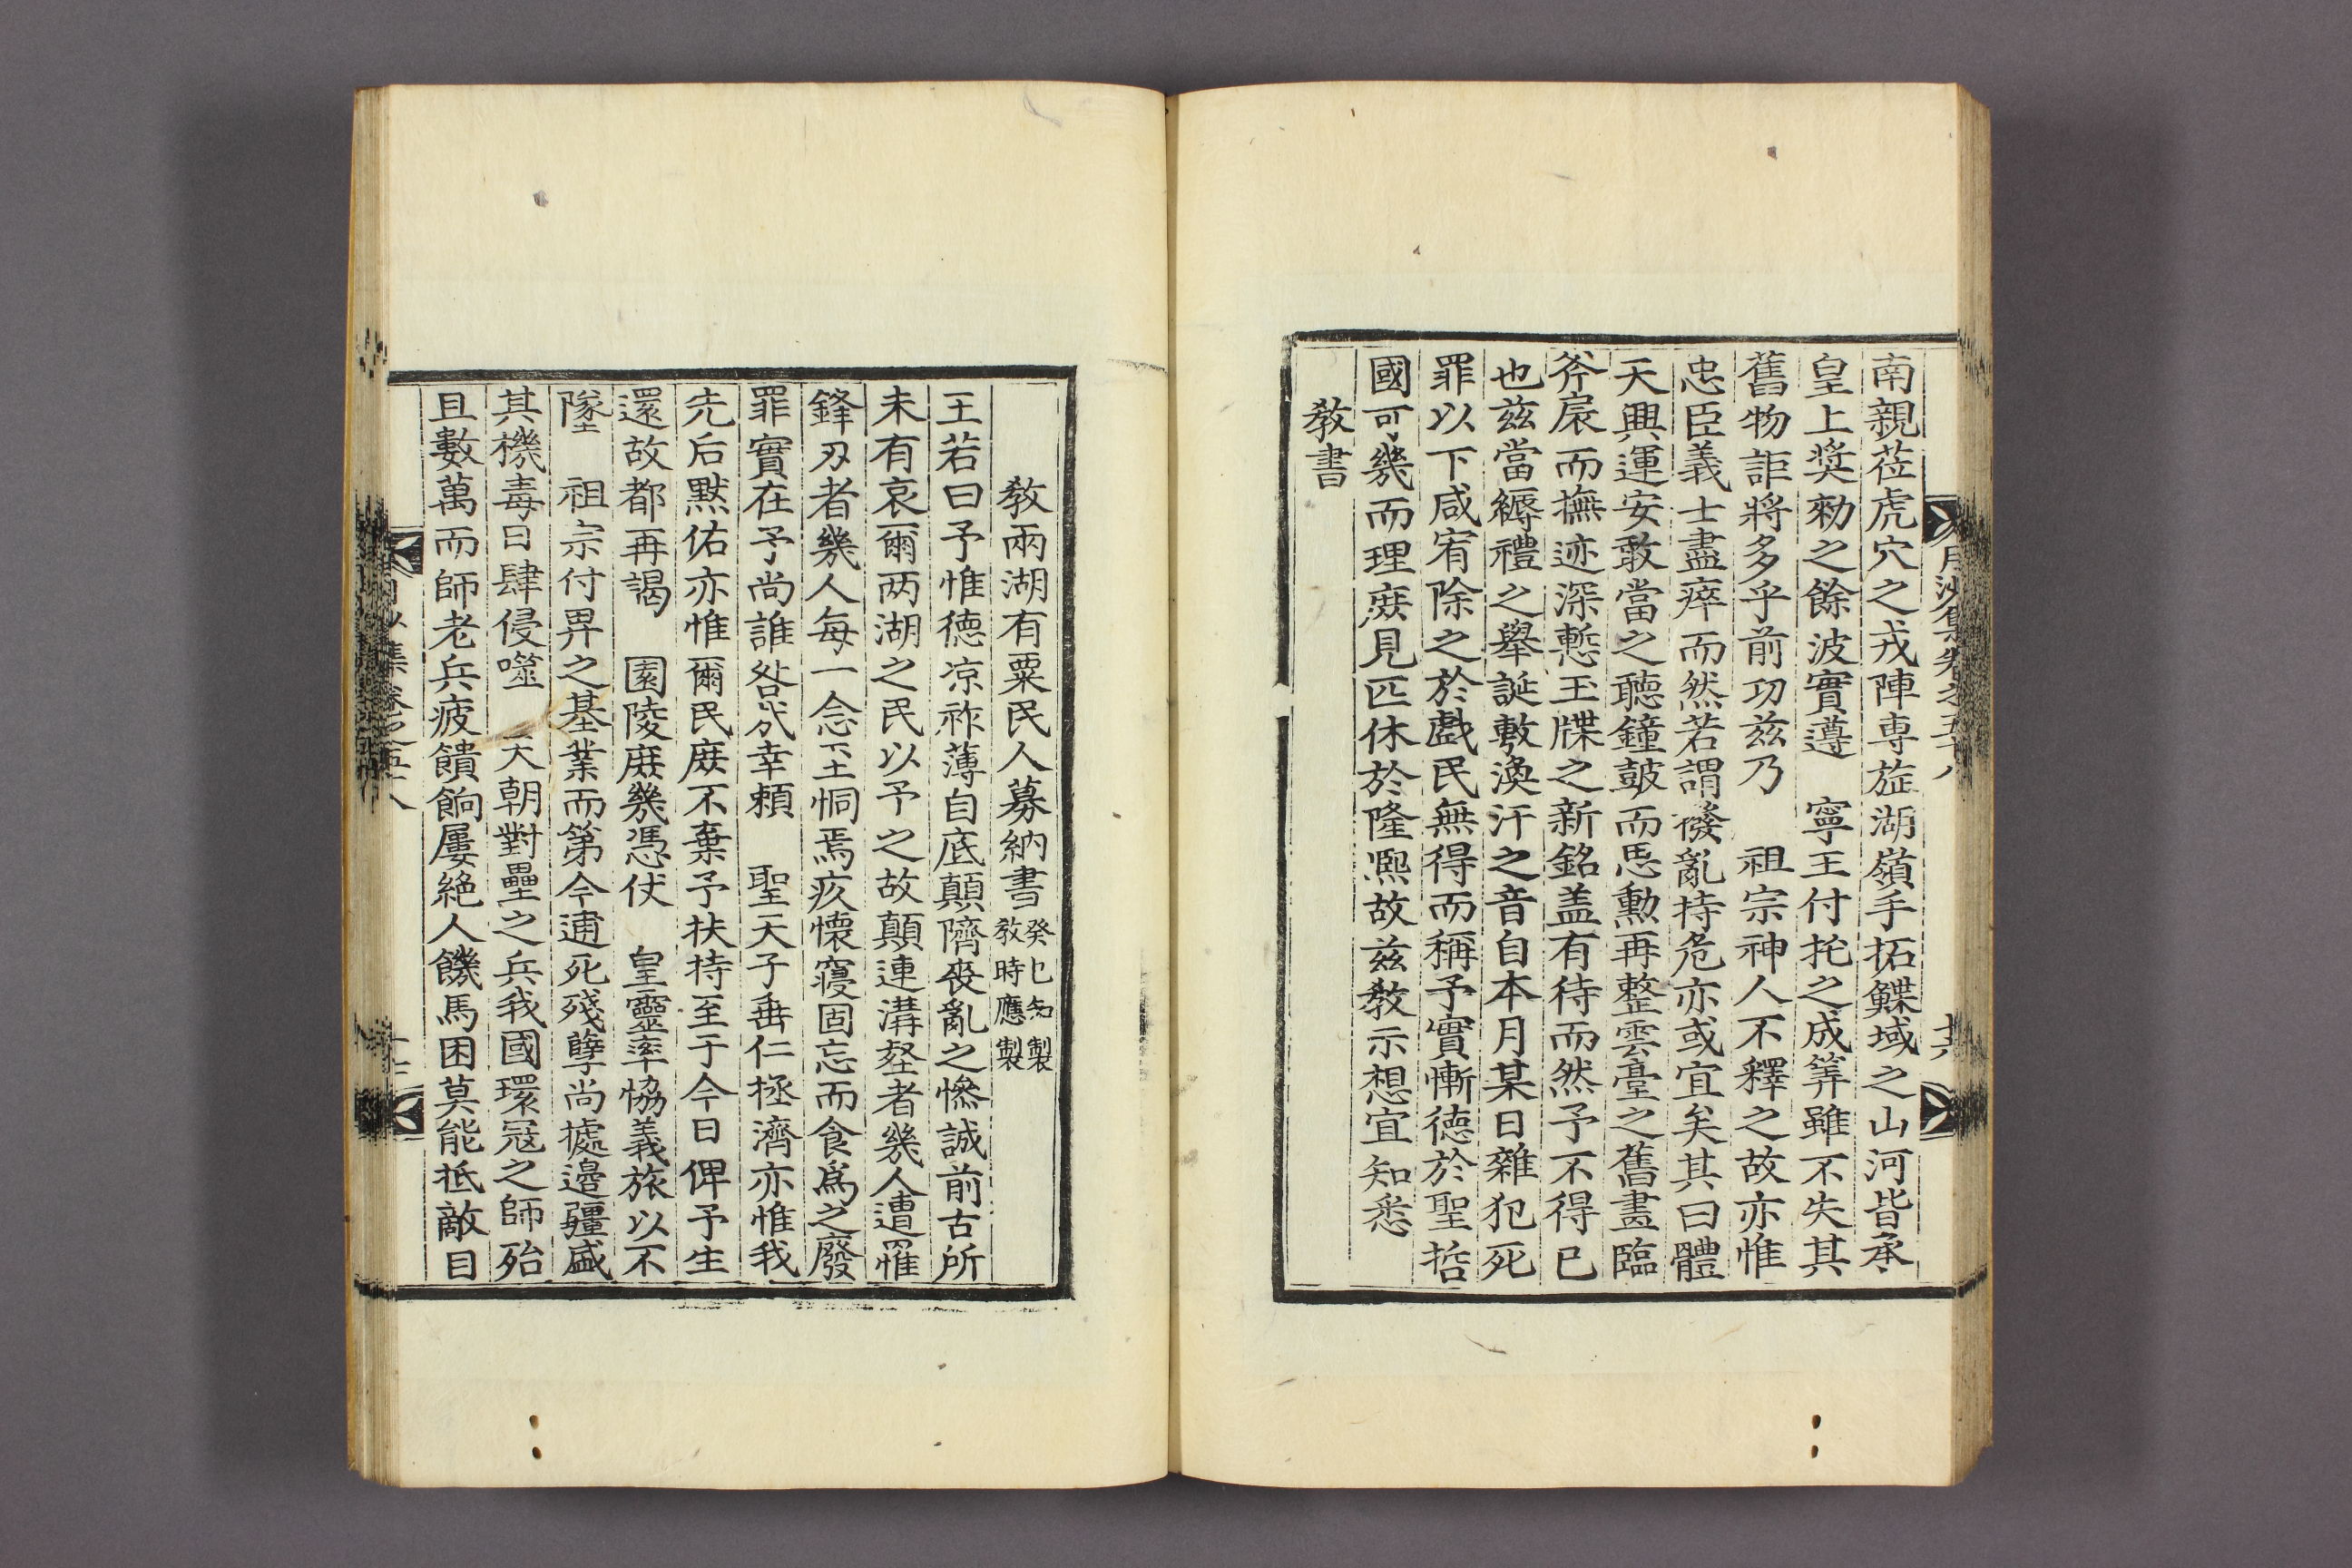 南親莅虎穴之戎陣專旋湖嶺手拓鰈域之山河皆承
皇上奬勑之餘波實遵　寧王付托之成筭雖不失其
舊物詎將多乎前功玆乃　祖宗神人不釋之故亦惟
忠臣義士盡瘁而然若謂撥亂持危亦或宜矣其曰體
天興運安敢當之聽鐘皷而思勳再整雲臺之舊畫臨
斧扆而撫迹深慙玉牒之新銘盖有待而然予不得已
也玆當縟禮之舉誕敷渙汗之音自本月某日雜犯死
罪以下咸宥除之於戲民無得而稱予實慚德於聖哲
國可幾而理庶見匹休於隆熙故玆敎示想宜知悉
敎書
敎兩湖有粟民人募納書
癸巳知製
敎時應製
王若曰予惟德凉祚薄自底顚隮喪亂之慘誠前古所
未有哀爾两湖之民以予之故顚連溝壑者幾人遭罹
鋒刃者幾人每一念至恫焉疚懷寢固忘而食爲之廢
罪實在予尙誰咎哉幸頼　聖天子垂仁拯濟亦惟我
先后默佑亦惟爾民庶不棄予扶持至于今日俾予生
還故都再謁　園陵庶幾憑仗　皇靈率恊義旅以不
墜　祖宗付畀之基業而第今逋死殘孽尙據邊疆盛
其機毒日肆侵噬　天朝對壘之兵我國環寇之師殆
且數萬而師老兵疲饋餉屢絶人饑馬困莫能抵敵目